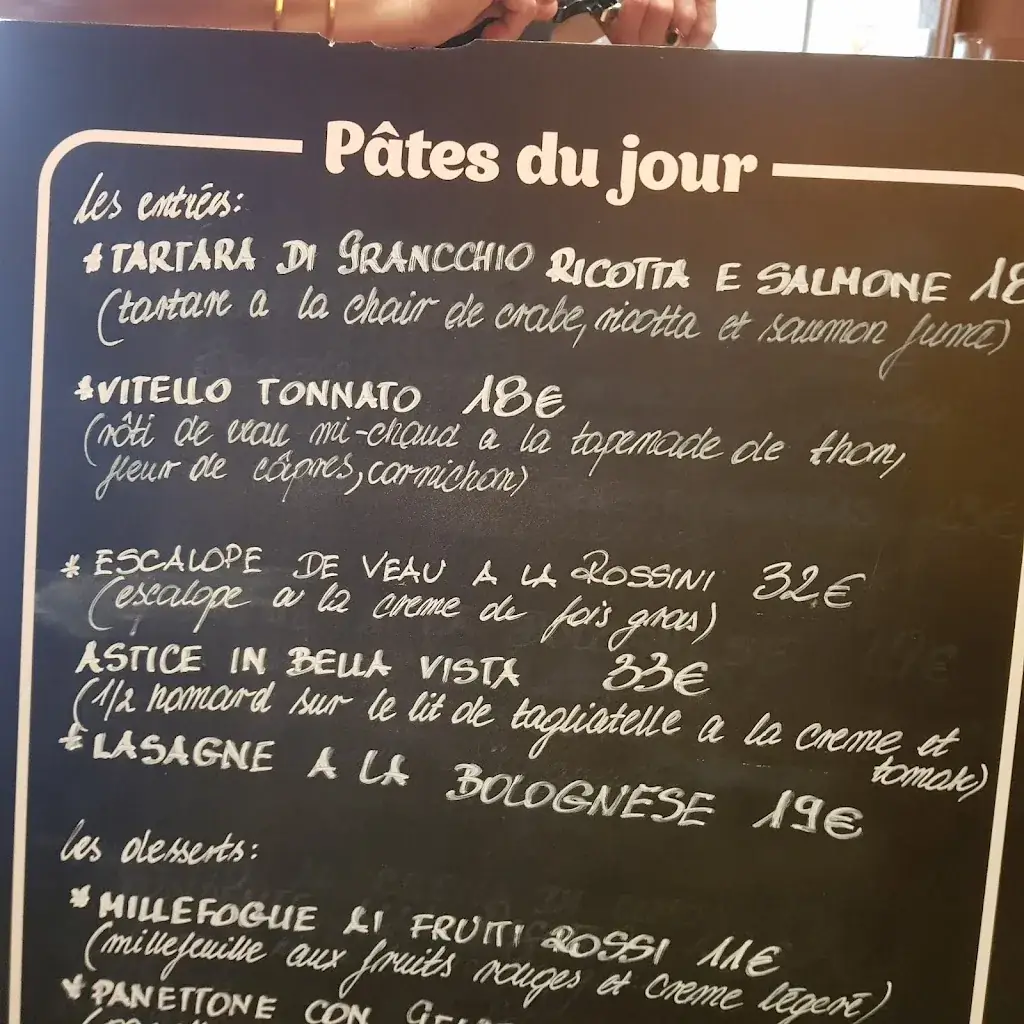 Pâtes du jour
les entrées:
*TARTARA DI GRANCCHIO RICOTTA E SALMONE 18
(tartare a la chair de crabe, ricotta et saumon fumé)
*VITELLO TONNATO 18€
(rôti de veau mi-chaud a la tapenade de thon,
fleur de câpres, cornichon)
* ESCALOPE DE VEAU A LA ROSSINI 32€
(escalope a la creme de fois gras)
ASTICE IN BELLA VISTA 33€
(1/2 homard sur le lit de tagliatelle a la creme et
tomate)
*LASAGNE A LA BOLOGNESE 19€
les desserts:
*MILLEFOGUE AI FRUITI ROSSI 11€
(millefeuille aux fruits rouges et creme légere)
*PANETTONE CON